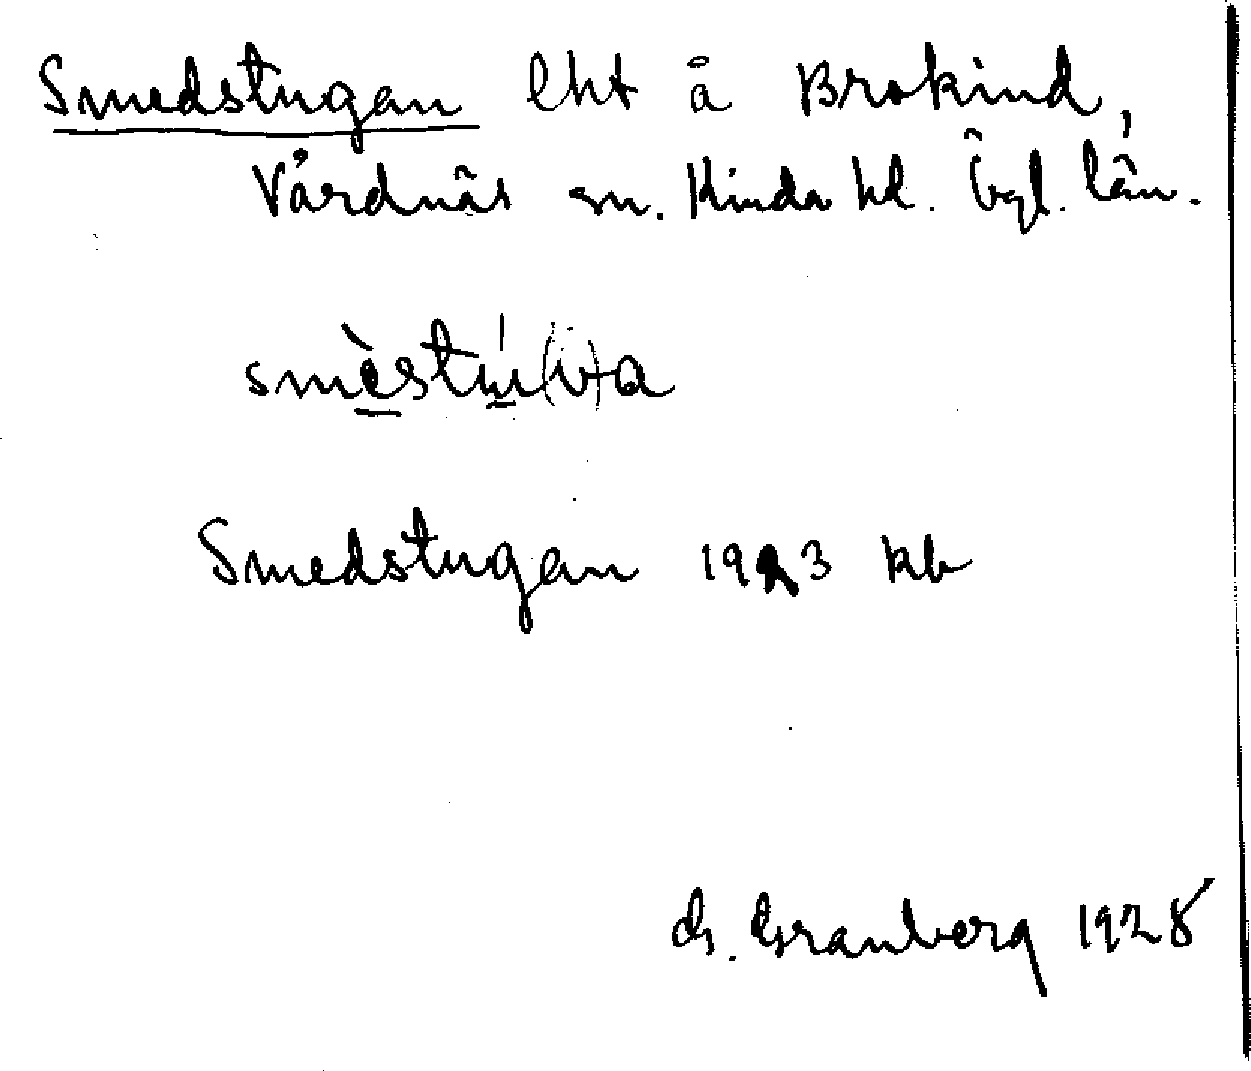 Smedstugan lht å Brokind,
Vårdnäs sn. Kinda hd. Ögl. län.
smèstú(v)a
Smedstugan 1923 kb
G. Granberg 1928